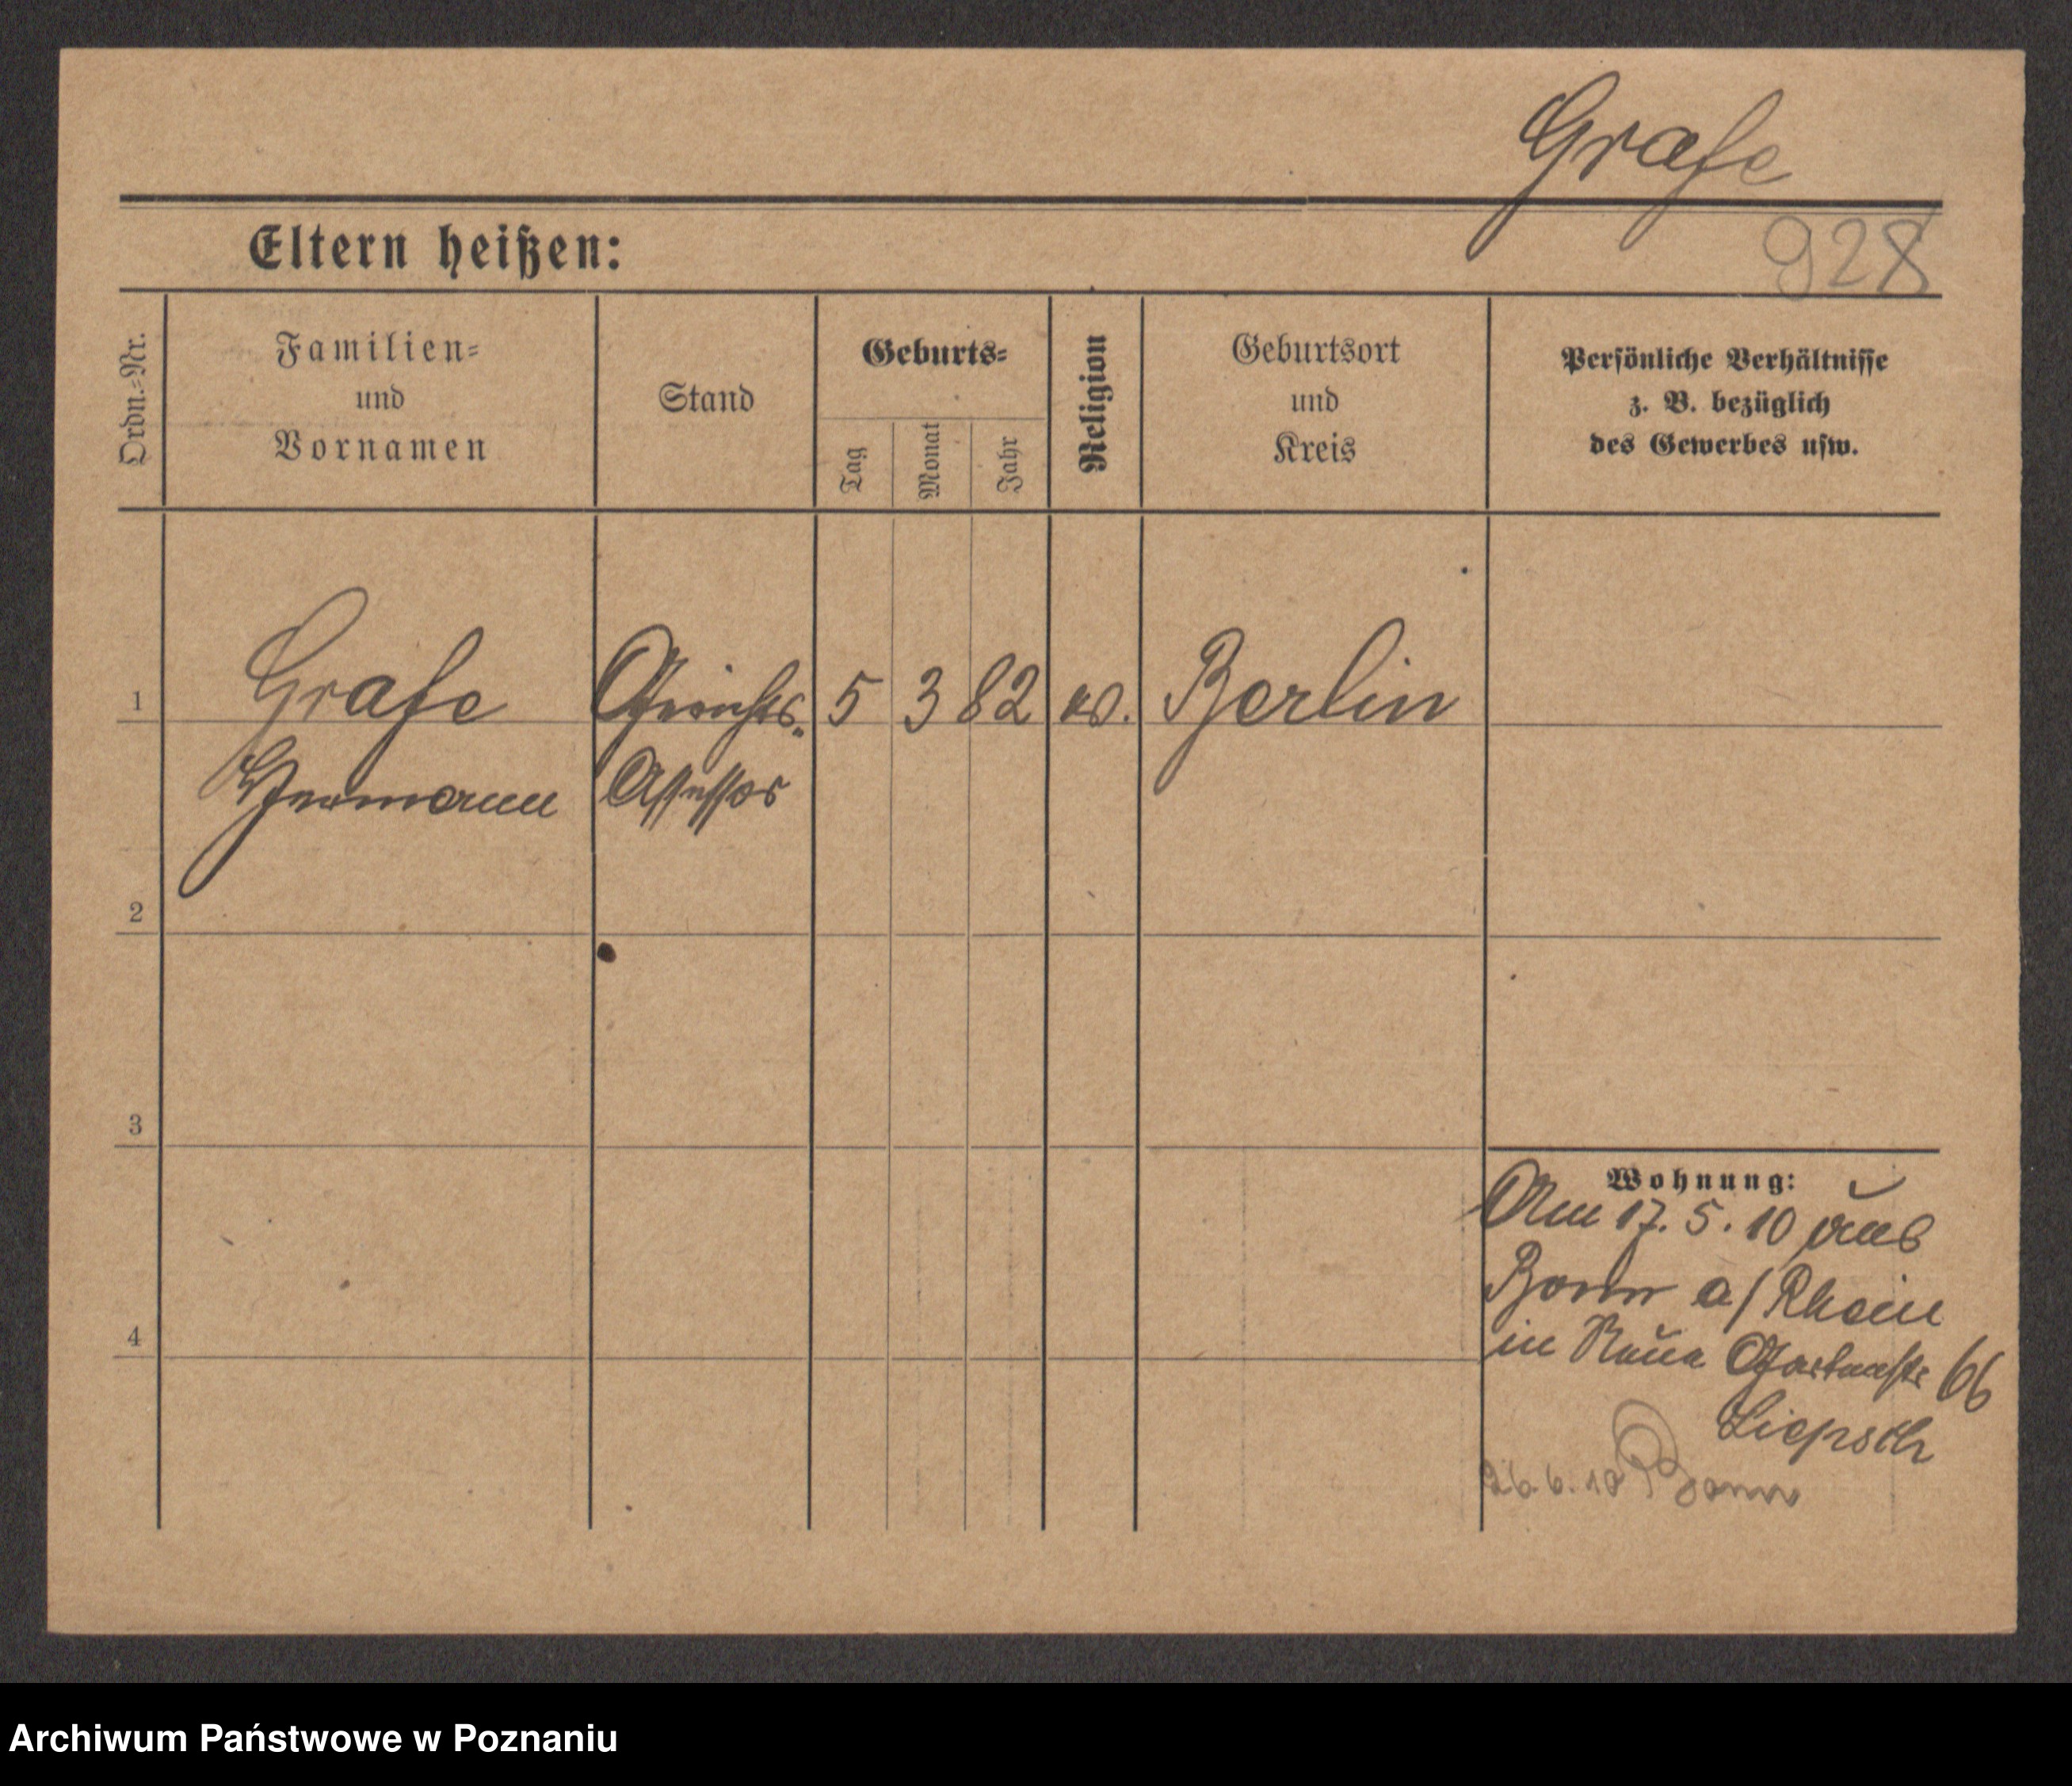 Grafe
928
Eltern heißen:
Ordn.-Nr.
Familien-
und
Vornamen
Stand
Geburts-
Tag
Monat
Jahr
Religion
Geburtsort
und
Kreis
Persönliche Verhältnisse
z. B. bezüglich
des Gewerbes usw.
1
Grafe
Gerichts-
5
3
82
ev.
Berlin
Hermann
Assessor
2
3
4
Wohnung:
Am 17. 5. 10 aus
Bonn a/Rhein
in Neue Gartenstr 66
26. 6. 10 Bonn
Archiwum Państwowe w Poznaniu